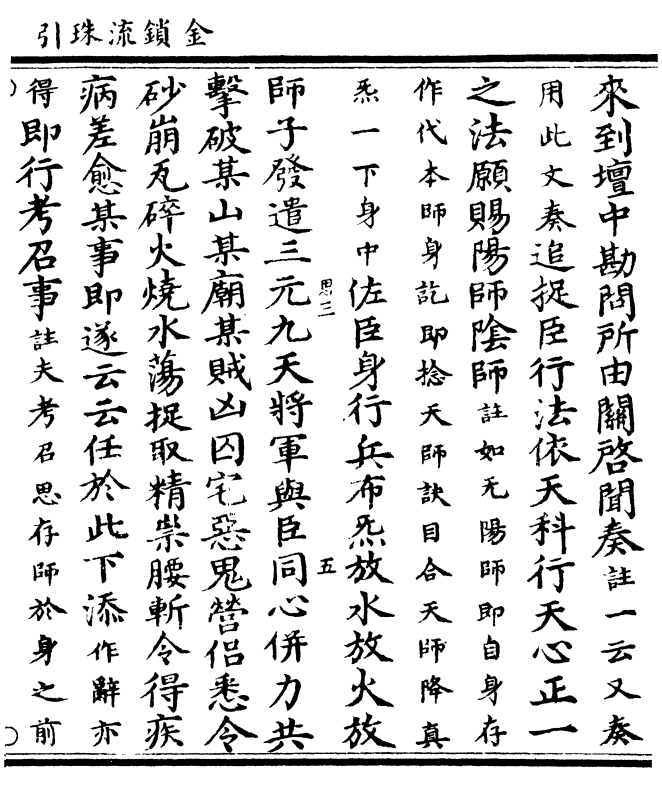 金鎖流珠引
來到壇中勘問所由關啓聞奏註一云又奏
用此文奏追捉臣行法依天科行天心正一
之法願賜陽師陰師註如无陽師即自身存
作代本師身訖即捻天師訣目合天師降真
炁一下身中佐臣身行兵布炁放水放火放
思三 五
師子發遣三元九天將軍與臣同心併力共
擊破某山某廟某賊凶囚宅惡鬼營侶悉令
砂崩瓦碎火燒水蕩捉取精祟腰斬令得疾
病差愈某事即遂云云任於此下添作辭亦
得即行考召事註夫考召思存師於身之前